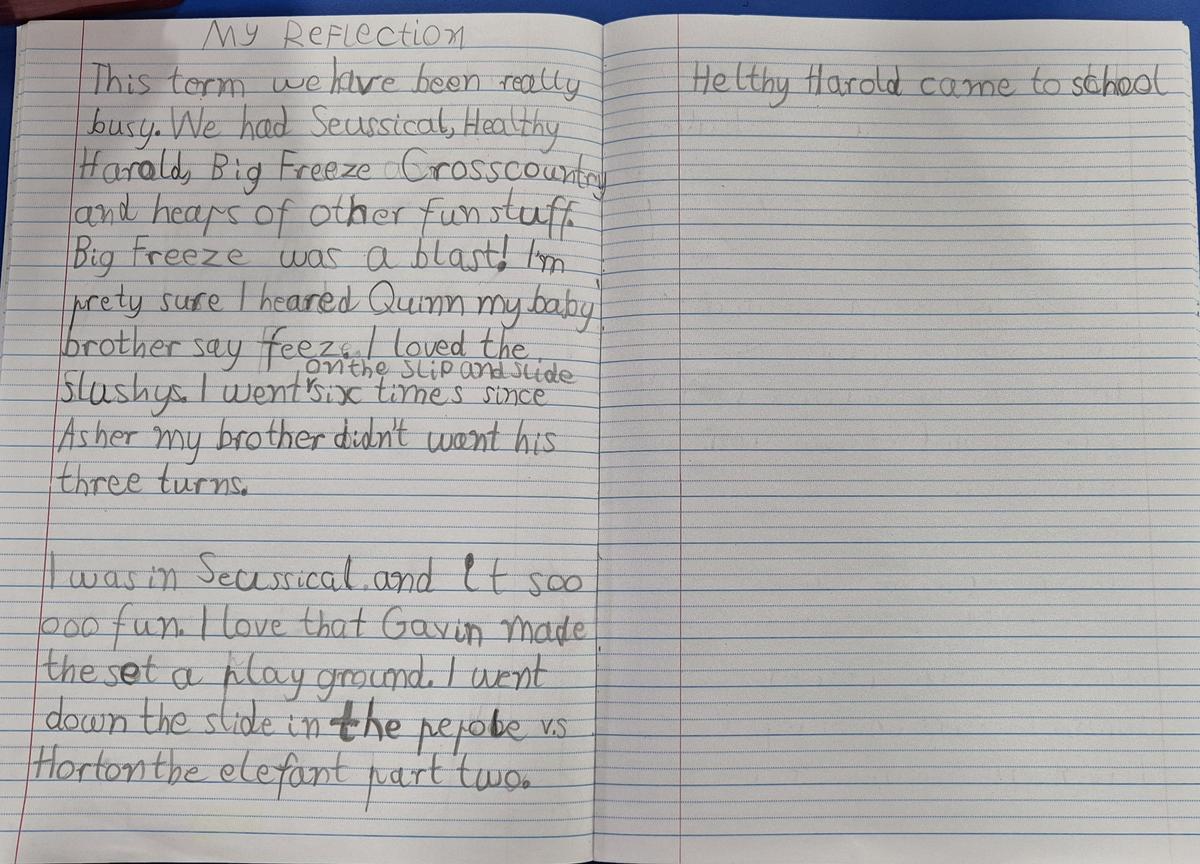 My Reflection
This term we have been really
busy. We had Seussical, Healthy
Harold, Big Freeze Crosscountry
and heaps of other fun stuff.
Big freeze was a blast! I'm
prety sure I heared Quinn my baby
brother say feeze. I loved the
on the slip and slide
Slushys. I went six times since
Asher my brother didn't want his
three turns.
I was in Seussical. and It soo
ooo fun. I love that Gavin made
the set a play ground. I went
down the slide in the pepole v.s
Horton the elefant part two.
Helthy Harold came to school